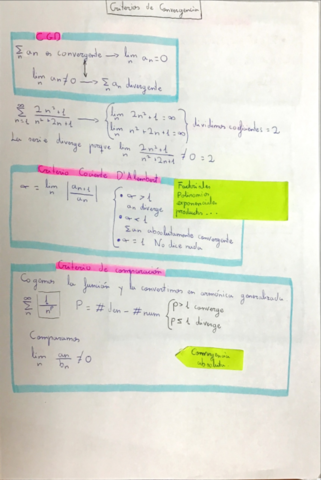 Criterios de Convergencia
CGD
∑n an es convergente → lim n an = 0
lim n an ≠ 0 → ∑n an divergente
∑ n=1 ∞ 2n²+1 / n²+2n+1 → { lim n 2n²+1 = ∞
lim n n²+2n+1 = ∞ } dividimos coeficientes = 2
La serie diverge porque lim n 2n²+1 / n²+2n+1 ≠ 0 = 2
Criterio Cociente D'Alembert
r = lim n | an+1 / an |
• r > 1
an diverge
• r < 1
∑ an absolutamente convergente
• r = 1 No dice nada
Factoriales
Polinomios
exponenciales
productos...
Criterio de comparación
Cogemos la función y la convertimos en armónica generalizada
P = # den - # num { p > 1 converge
p ≤ 1 diverge
Comparamos
lim n an / bn ≠ 0
Convergencia
absoluta